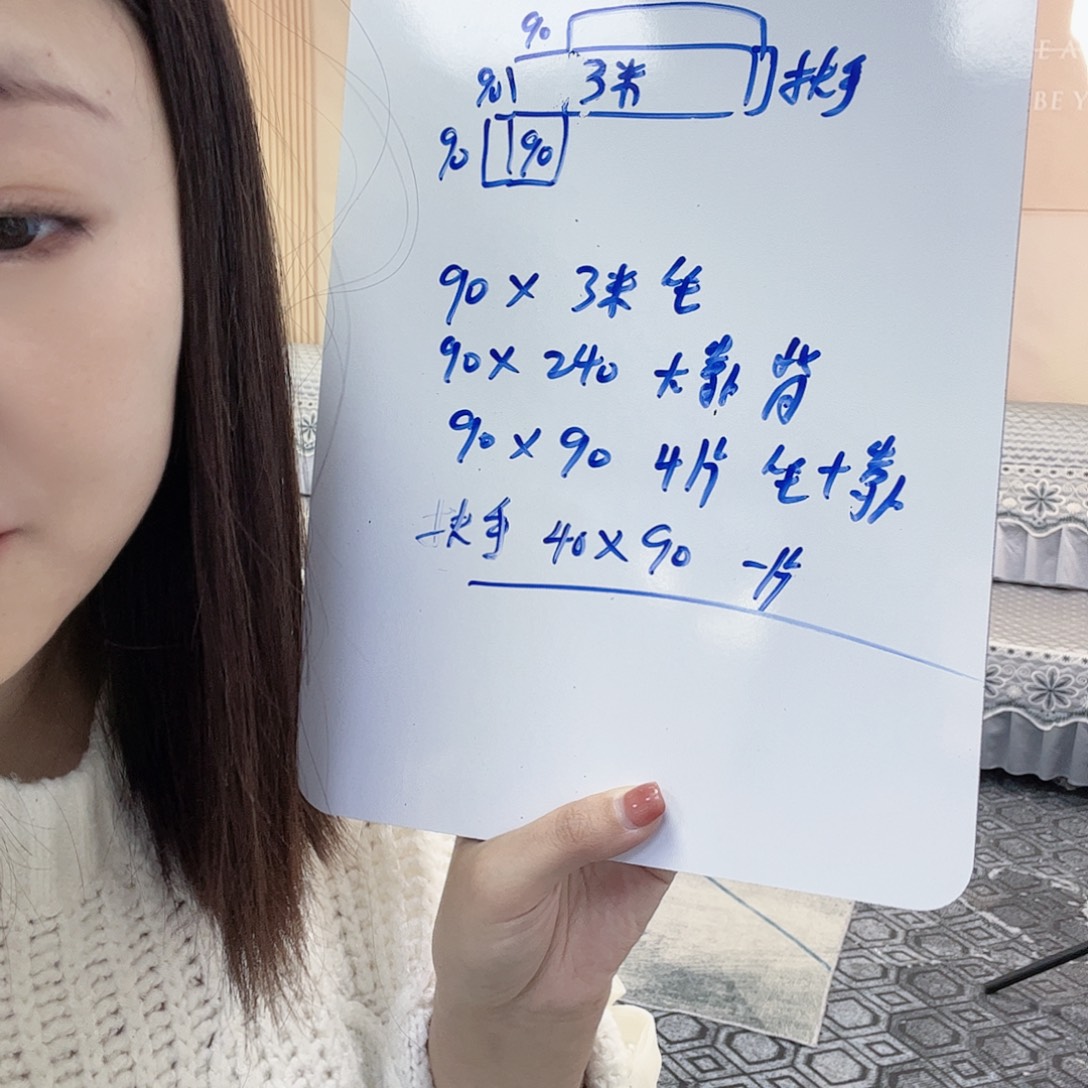 90
90 3米 扶手
90 90
90 × 3米 坐
90 × 240 大款 背
90 × 90 4片 坐+款
扶手 40×90 一片
E A
BE Y